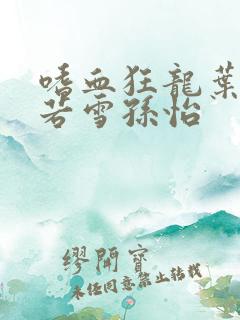 嗜血狂龍葉
若雪孫怡
繆開寶
未任同意禁止轉載